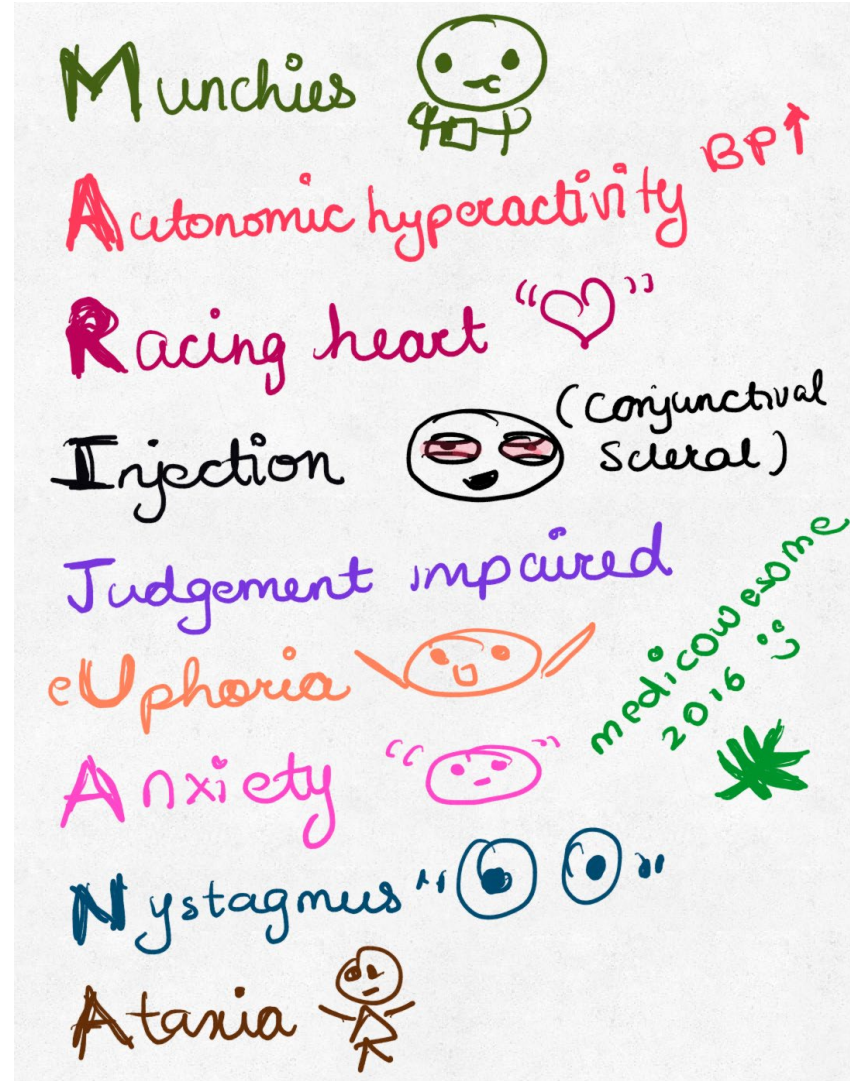 Munchies
Autonomic hyperactivity BP↑
Racing heart
Injection (Conjunctival
Scleral)
Judgement impaired
eUphoria
Anxiety
Nystagmus
Ataxia
medicowesome
2016 :)